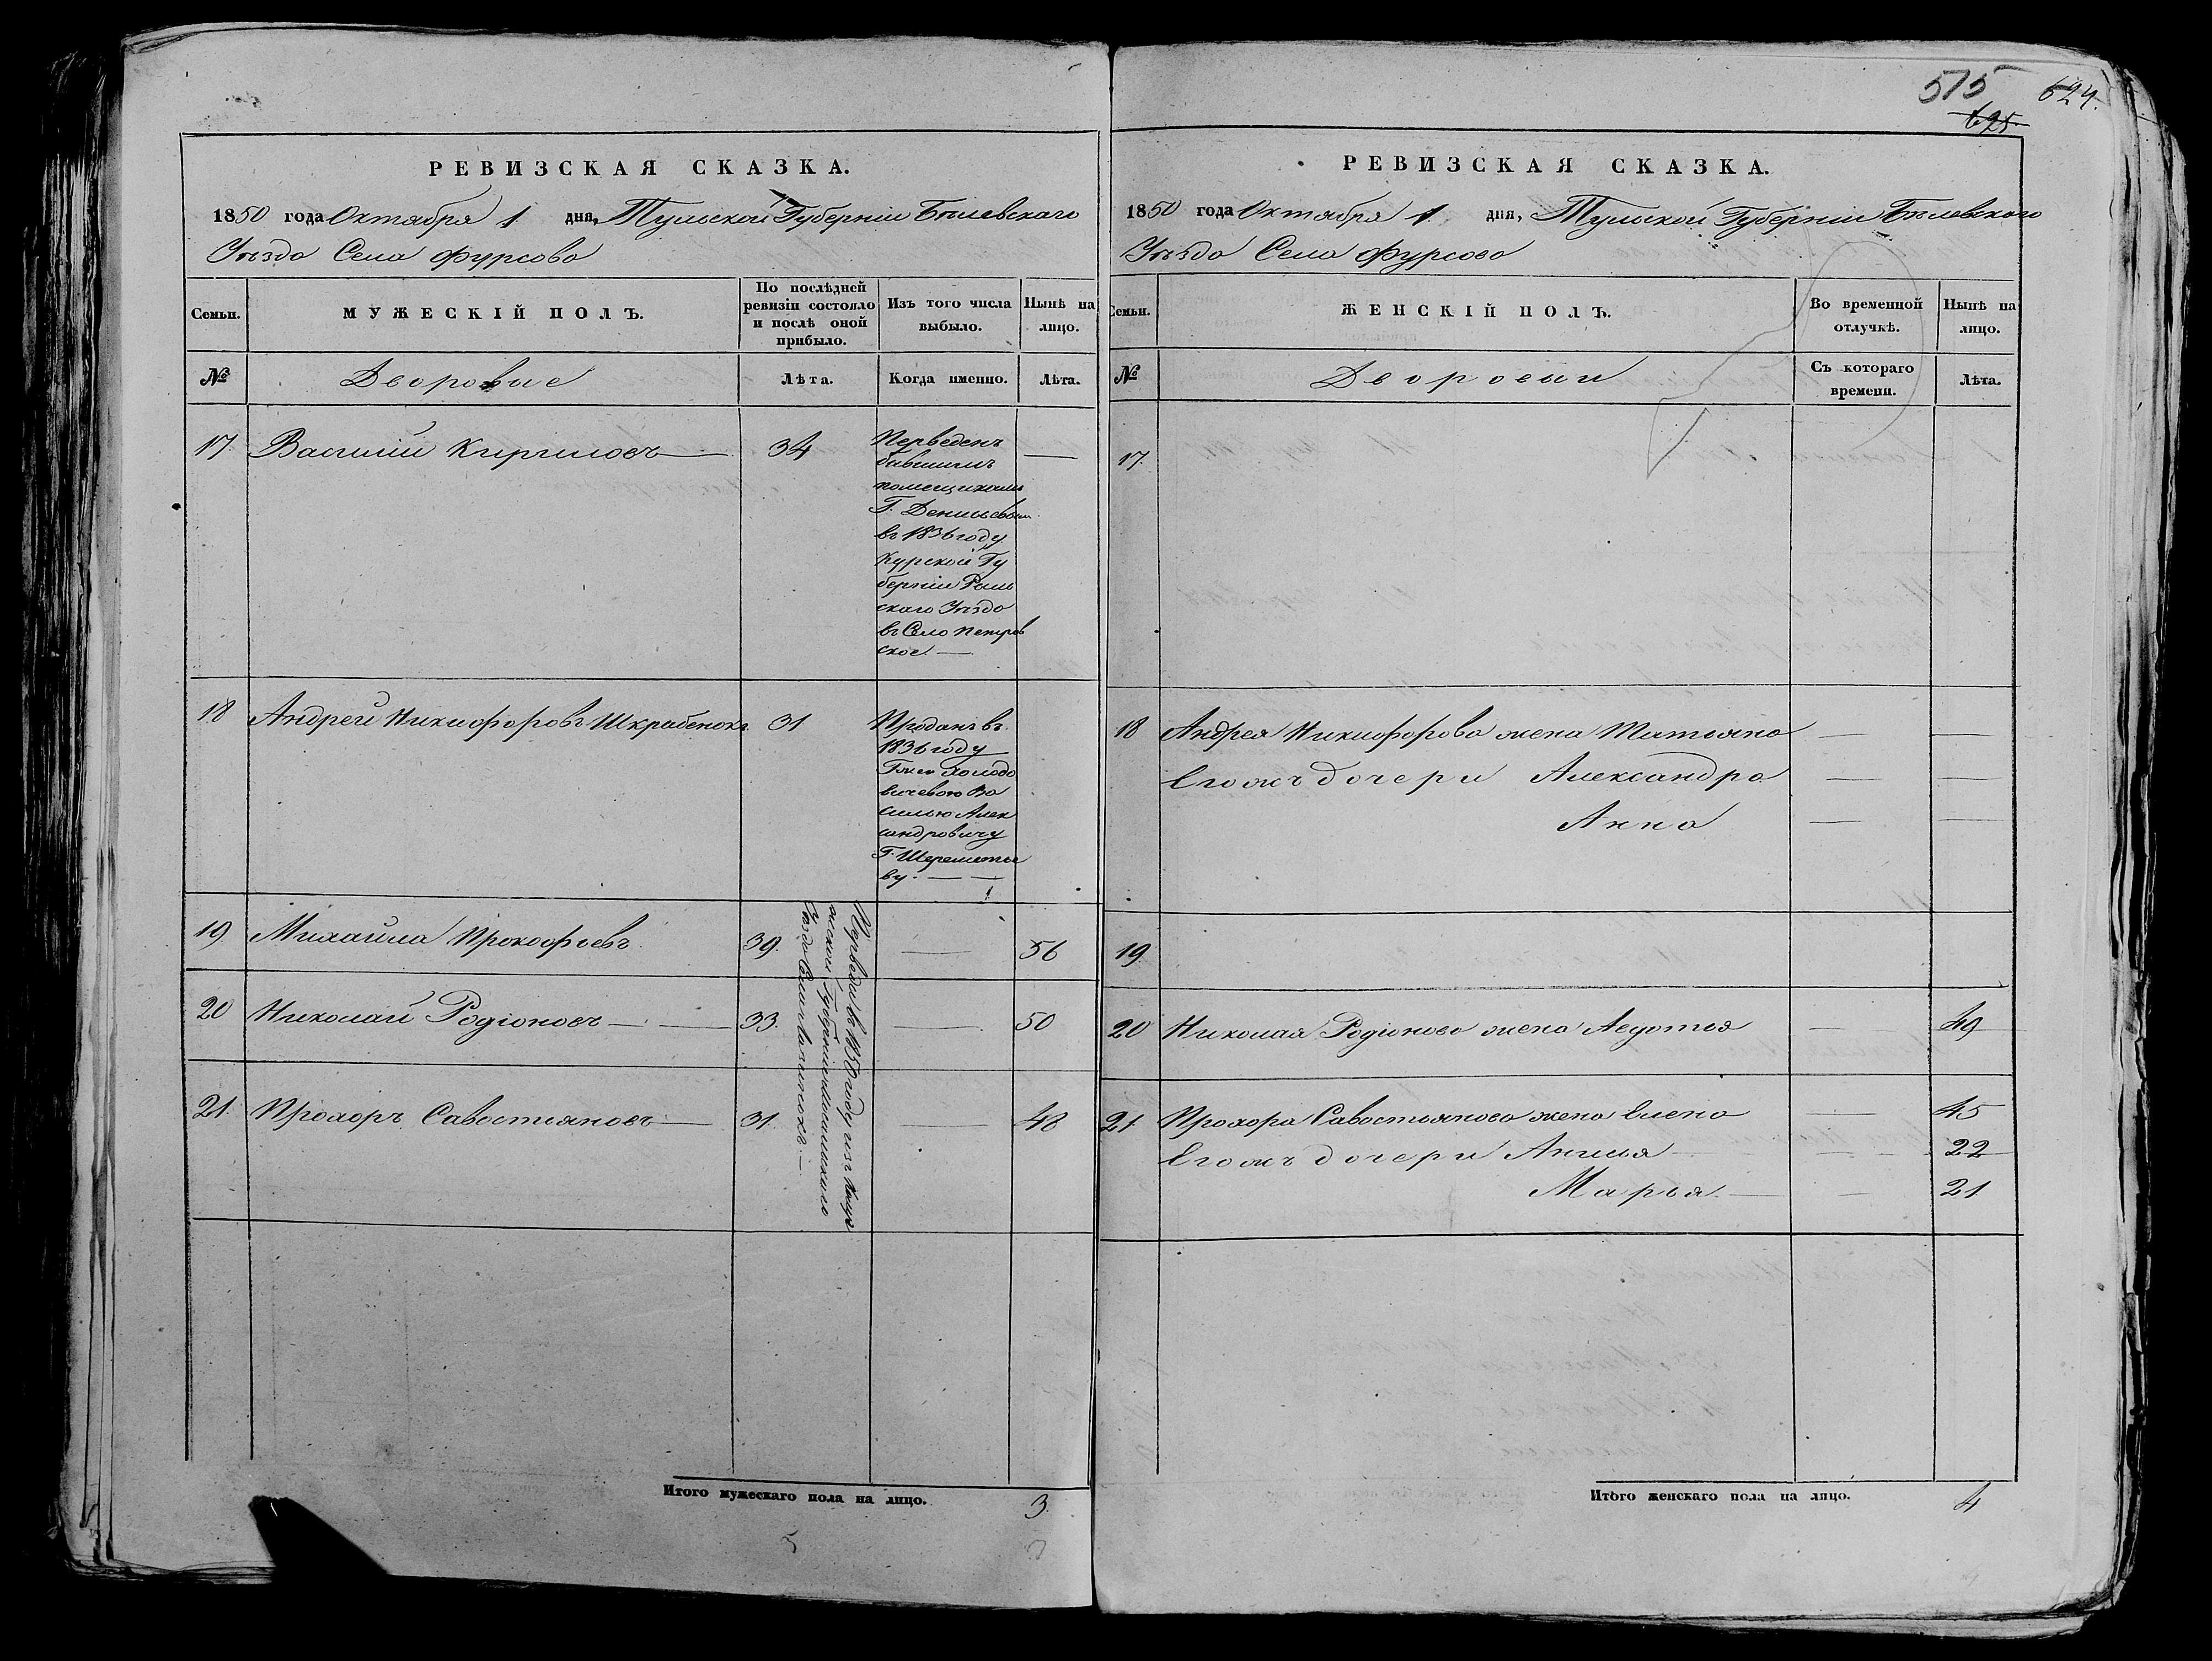 РЕВИЗСКАЯ СКАЗКА.
1850 года Октября 1 дня, Тульской Губерніи Бѣлевскаго
Уѣзда Села Фурсова
Семьи.
МУЖЕСКІЙ ПОЛЪ.
По послѣдней
ревизіи состояло
и послѣ оной
прибыло.
Изъ того числа
выбыло.
Нынѣ на
лицо.
№
Дворовые
Лѣта.
Когда именно.
Лѣта.
17 Василій Кириловъ 34
Перведенъ
бывшимъ
помещикомъ
Г.
въ 1836 году
Курской Гу
берніи Рыль
скаго Уѣзда
въ Село Петров
ское
18 Андрей Никифоровъ Шкрабенокъ 31
Проданъ въ
1836 году
Холодо
вичевою Ва
силью Алек
сандровичу
Г. Шереметье
ву.
19 Михайла Прокофьевъ 39. 56
20 Николай Родіоновъ 33. 50
21. Прохоръ Савостьяновъ 31. 48
Перведены въ 1850 году изъ Калуж
ской Губерніи
Уѣзда Села
Итого мужескаго пола на лицо. 3.
575 624.
625
РЕВИЗСКАЯ СКАЗКА.
1850 года Октября 1 дня, Тульской Губерніи Бѣлевскаго
Уѣзда Села Фурсова
Семьи.
ЖЕНСКІЙ ПОЛЪ.
Во временной
отлучкѣ.
Нынѣ на
лицо.
№
Дворовыи
Съ котораго
времени.
Лѣта.
17.
18 Андрея Никифорова жена Татьяна
Егожъ дочери Александра
Анна
19
20 Николая Родіонова жена Авдотья 49
21 Прохора Савостьянова жена Елена 45
Егожъ дочери Анисья 22
Марья 21
Итого женскаго пола на лицо. 4